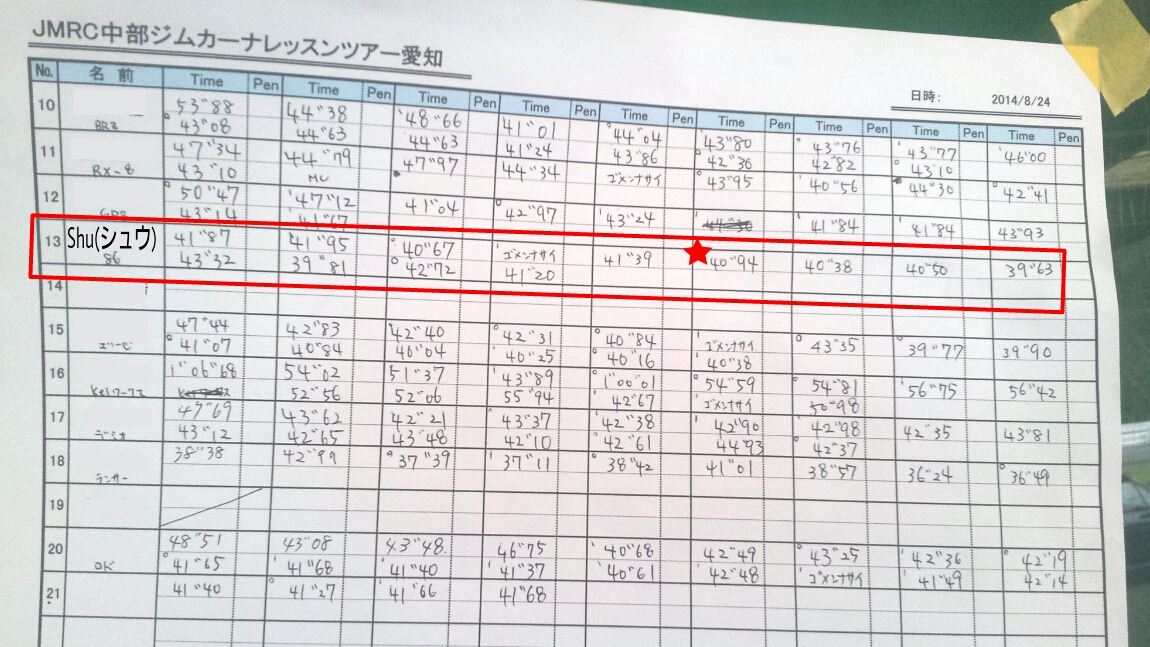 JMRC中部ジムカーナレッスンツアー愛知
日時: 2014/8/24
No. 名前 Time Pen Time Pen Time Pen Time Pen Time Pen Time Pen Time Pen Time Pen Time Pen
10 53"88 44"38 '48"66 41"01 °44"04 '43"80 °43"76 '43"77 '46"00
BRZ °43"08 44"63 44"63 41"24 43"86 °42"36 42"82 °43"10
11 47"34 44"79 47"97 44"34 ゴメンナサイ °43"95 '40"56 44"30 °42"41
RX-8 43"10 MC
12 °50"47 '47"12 41"04 °42"97 '43"24 41"84 '41"84 43"93
43"14 '41"17
13 Shu(シュウ) 41"87 41"95 °40"67 ゴメンナサイ 41"39 40"94 40"38 40"50 39"63
86 43"32 39"81 °42"72 41"20
14
15 47"44 42"83 42"40 °42"31 °40"84 ゴメンナサイ °43"35 39"77 39"90
°41"07 40"84 40"04 '40"25 °40"16 '40"38
16 1'06"68 54"02 51"37 '43"89 °1'00"01 °54"59 °54"81 '56"75 56"42
52"56 52"06 55"94 '42"67 ゴメンナサイ 50"98
17 47"69 43"62 42"21 °43"37 '42"38 '42"90 '42"98 42"35 43"81
デミオ 43"12 42"65 43"48 42"10 °42"61 44"93 °42"37
18 38"38 42"99 °37"39 '37"11 °38"42 41"01 38"57 36"24 °36"49
ランサー
19
20 48"51 43"08 43"48 46"75 '40"68 42"49 °43"25 '42"36 °42"19
ロド °41"65 '41"68 '41"40 '41"37 '40"61 '42"48 ゴメンナサイ '41"49 42"14
21 41"40 °41"27 '41"66 41"68